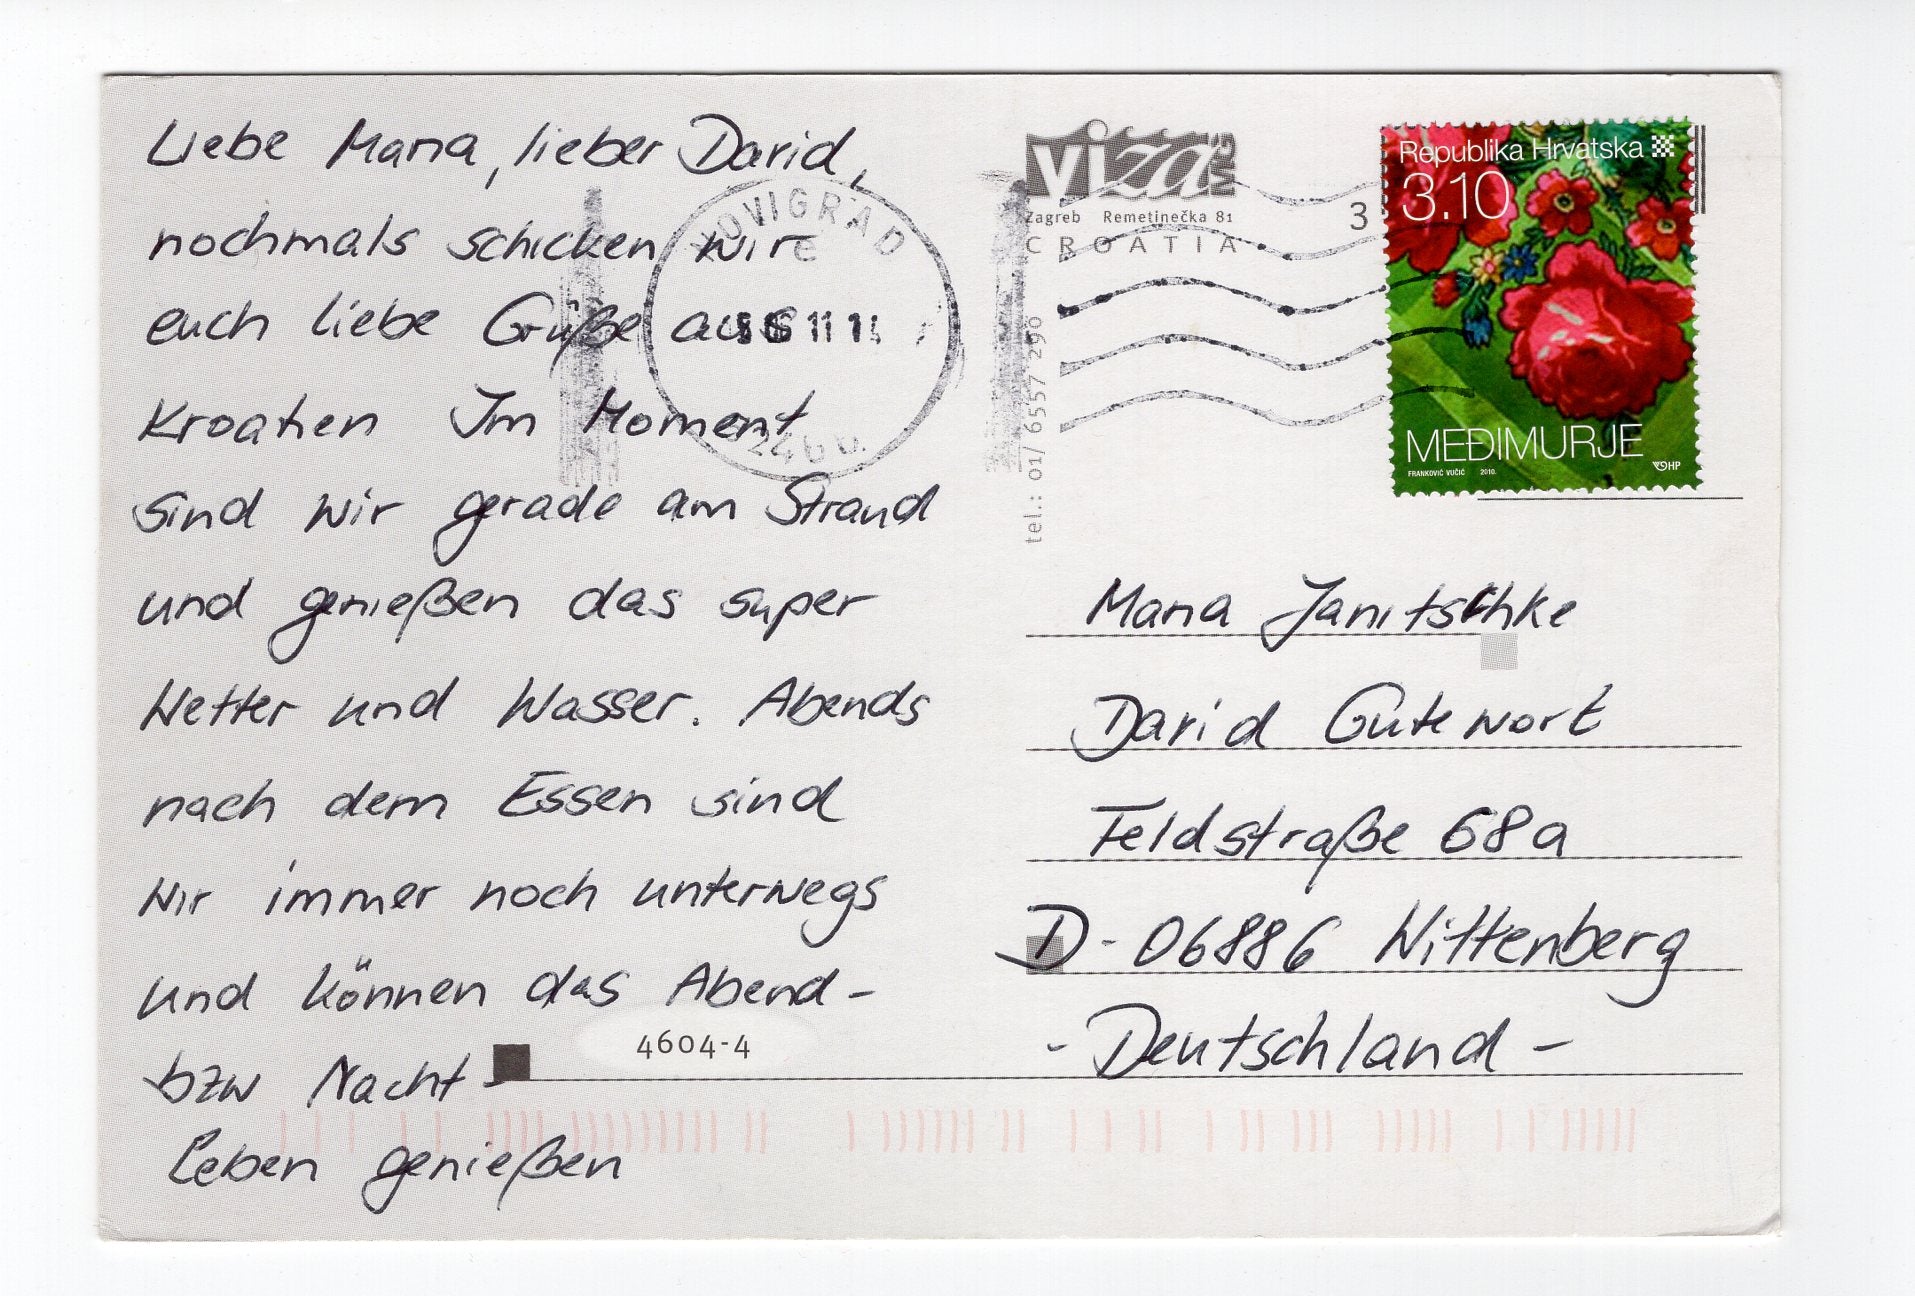 Liebe Mana, lieber David,
nochmals schicken wir
euch liebe Grüße aus
Kroatien Im Moment
sind wir gerade am Strand
und genießen das super
Wetter und Wasser. Abends
nach dem Essen sind
wir immer noch unterwegs
und können das Abend-
bzw Nacht-
leben genießen
NOVIGRAD
viza MG
Zagreb Remetinečka 81
CROATIA
tel.: 01/ 6557 290
3
Republika Hrvatska
3.10
MEĐIMURJE
FRANKOVIĆ VUČIĆ 2010.
HP
Mana Janitschke
David Gutewort
Feldstraße 68a
D-06886 Wittenberg
- Deutschland -
4604-4